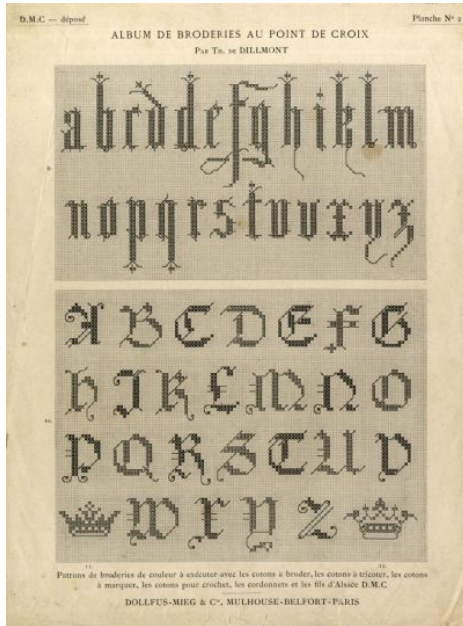 D.M.C — déposé
Planche Nº 2
ALBUM DE BRODERIES AU POINT DE CROIX
PAR TH. DE DILLMONT
a b c d d e f g h i k l m
n o p q r s t u v x y z
A B C D E F G
H I K L M N O
P Q R S T U V
W X Y Z
Patrons de broderies de couleur à exécuter avec les cotons à broder, les cotons à tricoter, les cotons
à marquer, les cotons pour crochet, les cordonnets et les fils d'Alsace D.M.C
DOLLFUS-MIEG & Cie, MULHOUSE-BELFORT-PARIS